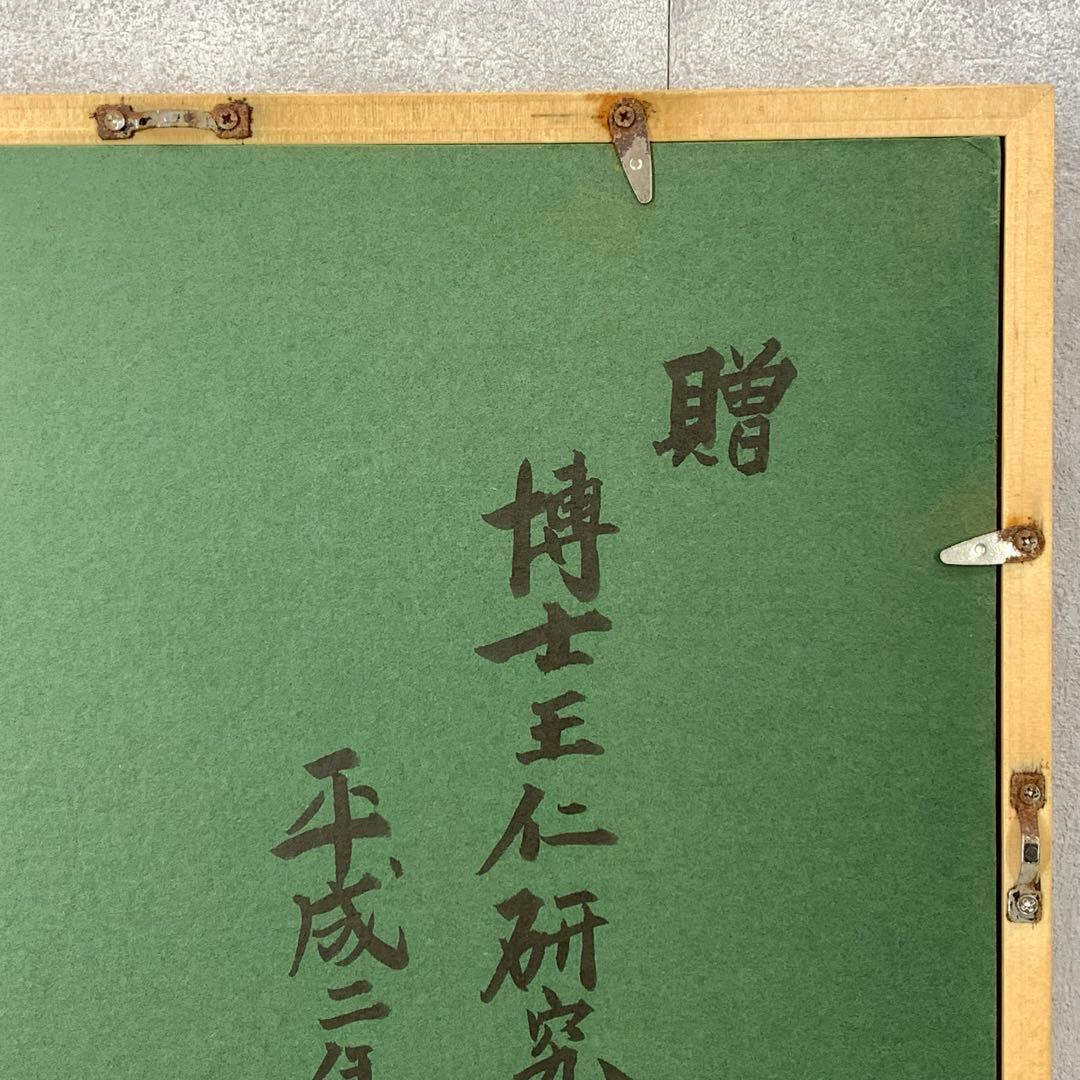 贈
博士王仁研究
平成二年